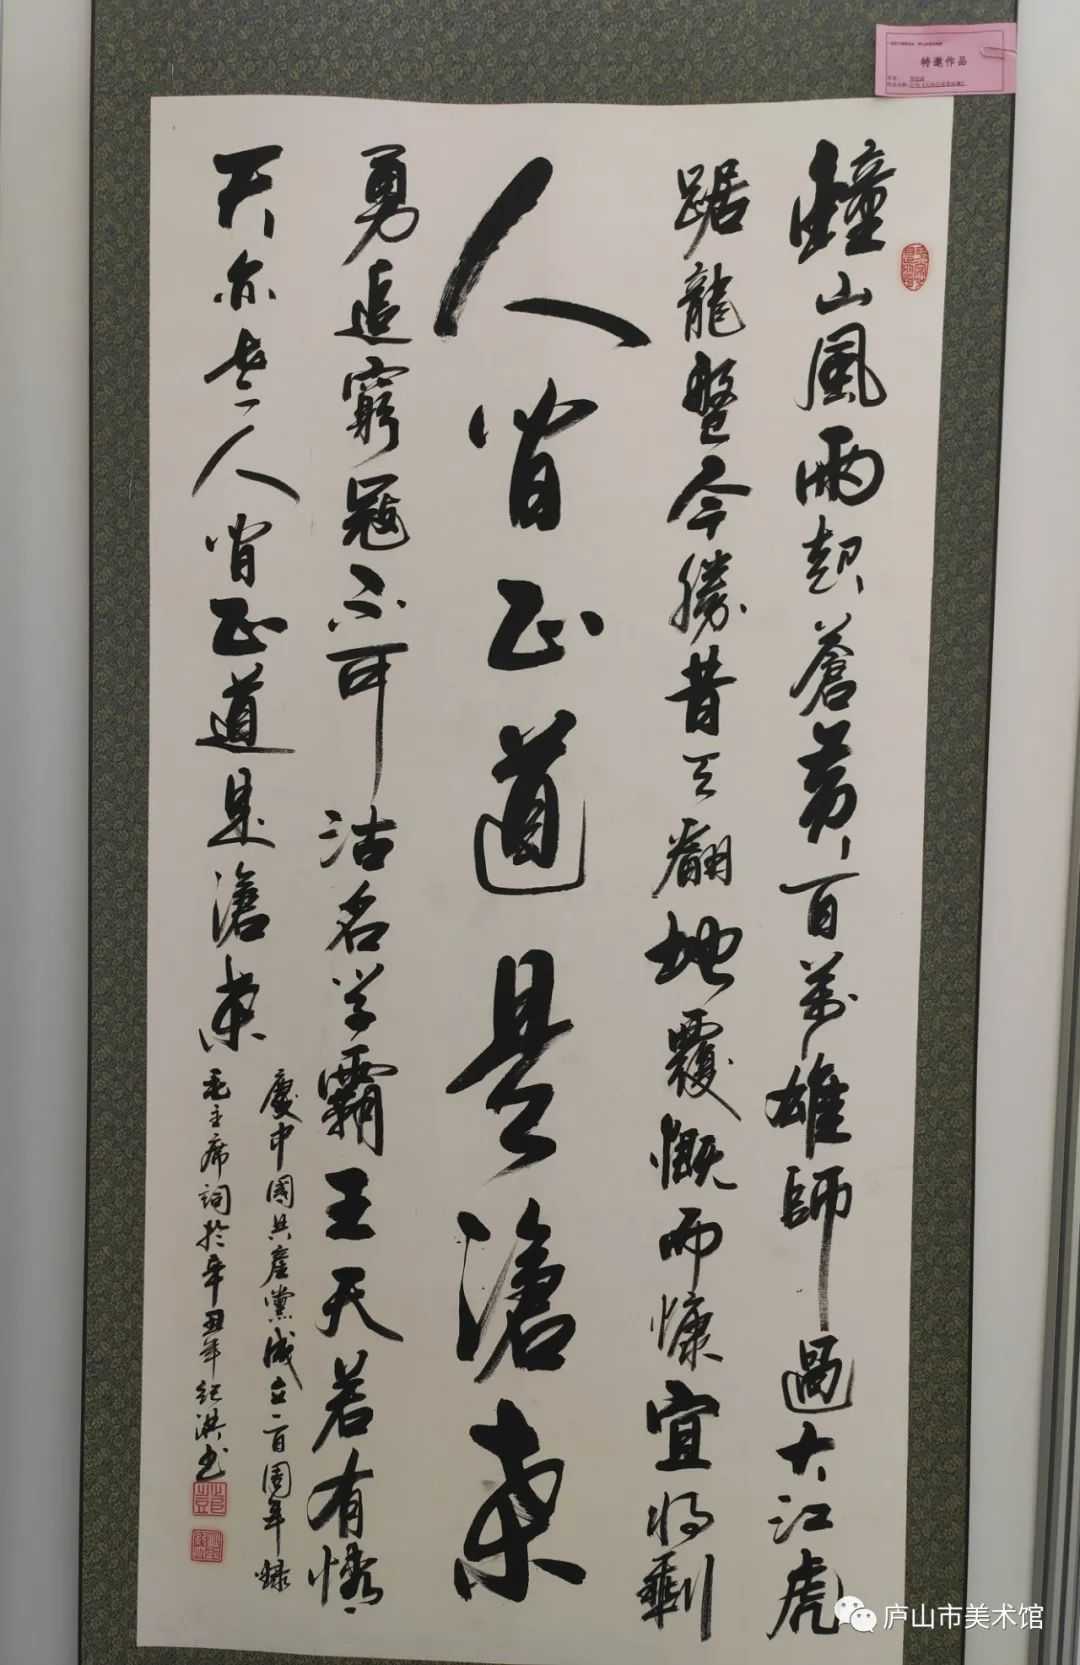 特邀作品
鐘山風雨起蒼黄百萬雄師過大江虎
踞龍盤今勝昔天翻地覆慨而慷宜将剩
人间正道是滄桑
勇追窮寇不可沽名学霸王天若有情
天亦老人间正道是滄桑
慶中國共產黨成立百周年録
毛主席詞於辛丑年紀洪书
庐山市美术馆